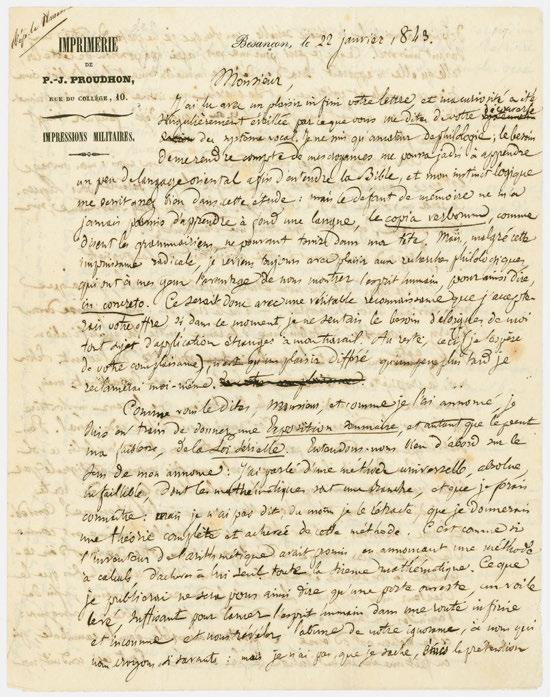 IMPRIMERIE
DE
P.-J. PROUDHON,
RUE DU COLLÈGE, 10.
IMPRESSIONS MILITAIRES.
Besançon, le 22 janvier 1843.
Monsieur,
J'ai lu avec un plaisir infini votre lettre, et ma curiosité a été
singulièrement éveillée par ce que vous me dites de votre découverte
du système vocal. Je ne suis qu'amateur de philologie; le besoin
de me rendre compte de mes croyances me poussa jadis à apprendre
un peu de langage oriental afin d'entendre la Bible, et mon instinct logique
me servit assez bien dans cette étude: mais le défaut de mémoire ne m'a
jamais permis d'apprendre à fond une langue, le copia verborum, comme
disent les grammairiens, ne pouvant tenir dans ma tête. Mais, malgré cette
impuissance radicale, je reviens toujours avec plaisir aux recherches philologiques,
qui ont à mes yeux l'avantage de nous montrer l'esprit humain, pour ainsi dire,
in concreto. Ce serait donc avec une véritable reconnaissance que j'accepte-
rais votre offre si dans le moment je ne sentais le besoin d'éloigner de moi
tout sujet d'application étranger à mon travail. Au reste, ceci, je l'espère
de votre complaisance, n'est qu'un plaisir différé qu'un peu plus tard je
réclamerai moi-même.
Comme vous le dites, Monsieur, et comme je l'ai annoncé, je
suis en train de donner une Exposition sommaire, et autant que le peut
ma faiblesse, de la Loi sérielle. Entendons-nous bien d'abord sur le
sens de mon annonce: J'ai parlé d'une méthode universelle, absolue,
infaillible, dont les mathématiques sont une branche, et que je ferais
connaître: mais je n'ai pas dit, du moins je le rétracte, que je donnerais
une théorie complète et achevée de cette méthode. C'est comme si
l'inventeur de l'arithmétique avait promis, en annonçant une méthode
de calcul, d'achever à lui seul toute la science mathématique. Ce que
je publierai ne sera pour ainsi dire qu'une porte ouverte, un voile
levé, suffisant pour lancer l'esprit humain dans une route infinie
et inconnue, et nous révéler l'abîme de notre ignorance, à nous qui
nous croyons si savants: mais je n'ai pas, que je sache, la prétention